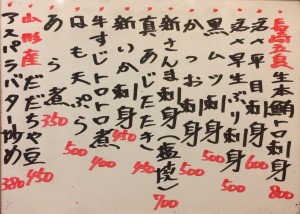 長崎五島 生本鮪トロ刺身 800
活〆早生目刺身 600
活〆早生ぶり刺身 500
黒ムツ刺身 500
かつお刺身 500
新さんま刺身(塩焼) 700
真あじたたき
新いか刺身 450
牛すじトロトロ煮 400
はも天ぷら 500
あら煮 350
山形産だだちゃ豆 450
アスパラバター炒め 380